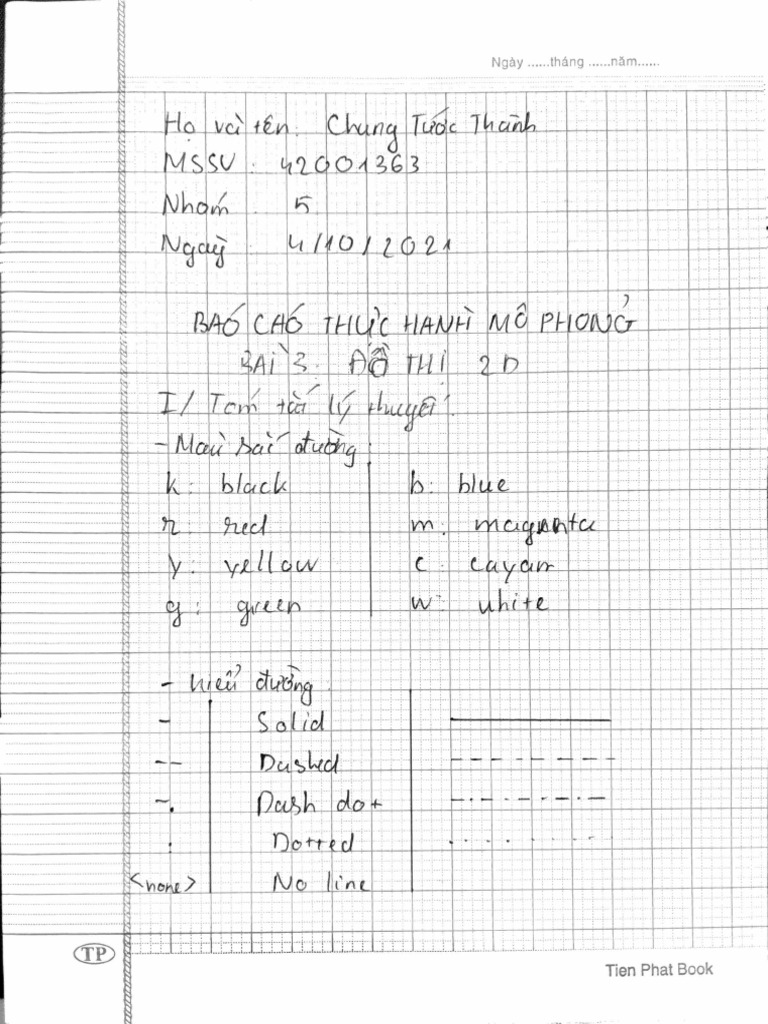 Ngày ......tháng ......năm......
Họ và tên: Chung Tước Thành
MSSV: 42001363
Nhóm: 5
Ngày: 4/10/2021
BÁO CÁO THỰC HÀNH MÔ PHỎNG
BÀI 3: ĐỒ THỊ 2D
I/ Tóm tắt lý thuyết:
- Màu sắc đường:
k: black b: blue
r: red m: magenta
y: yellow c: cayan
g: green w: white
- kiểu đường:
- Solid
-- Dashed
-. Dash dot
: Dotted
<none> No line
TP
Tien Phat Book